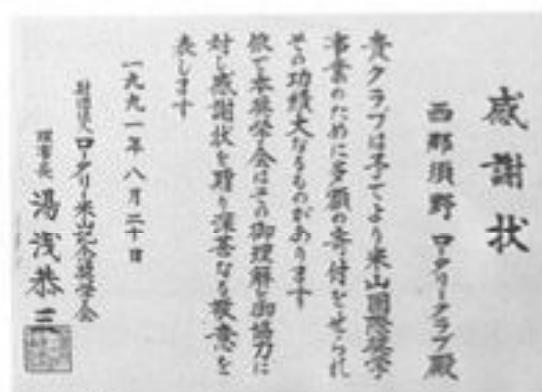 感謝状
西那須野ロータリークラブ殿
貴クラブは予てより米山国際奨学
事業のために多額の寄付をせられ
その功績大なるものがあります
依て本奨学会はその御理解と御協力に
対し感謝状を贈り深甚なる敬意を
表します
一九九一年八月二十日
財団法人ロータリー米山記念奨学会
理事長 湯浅恭三